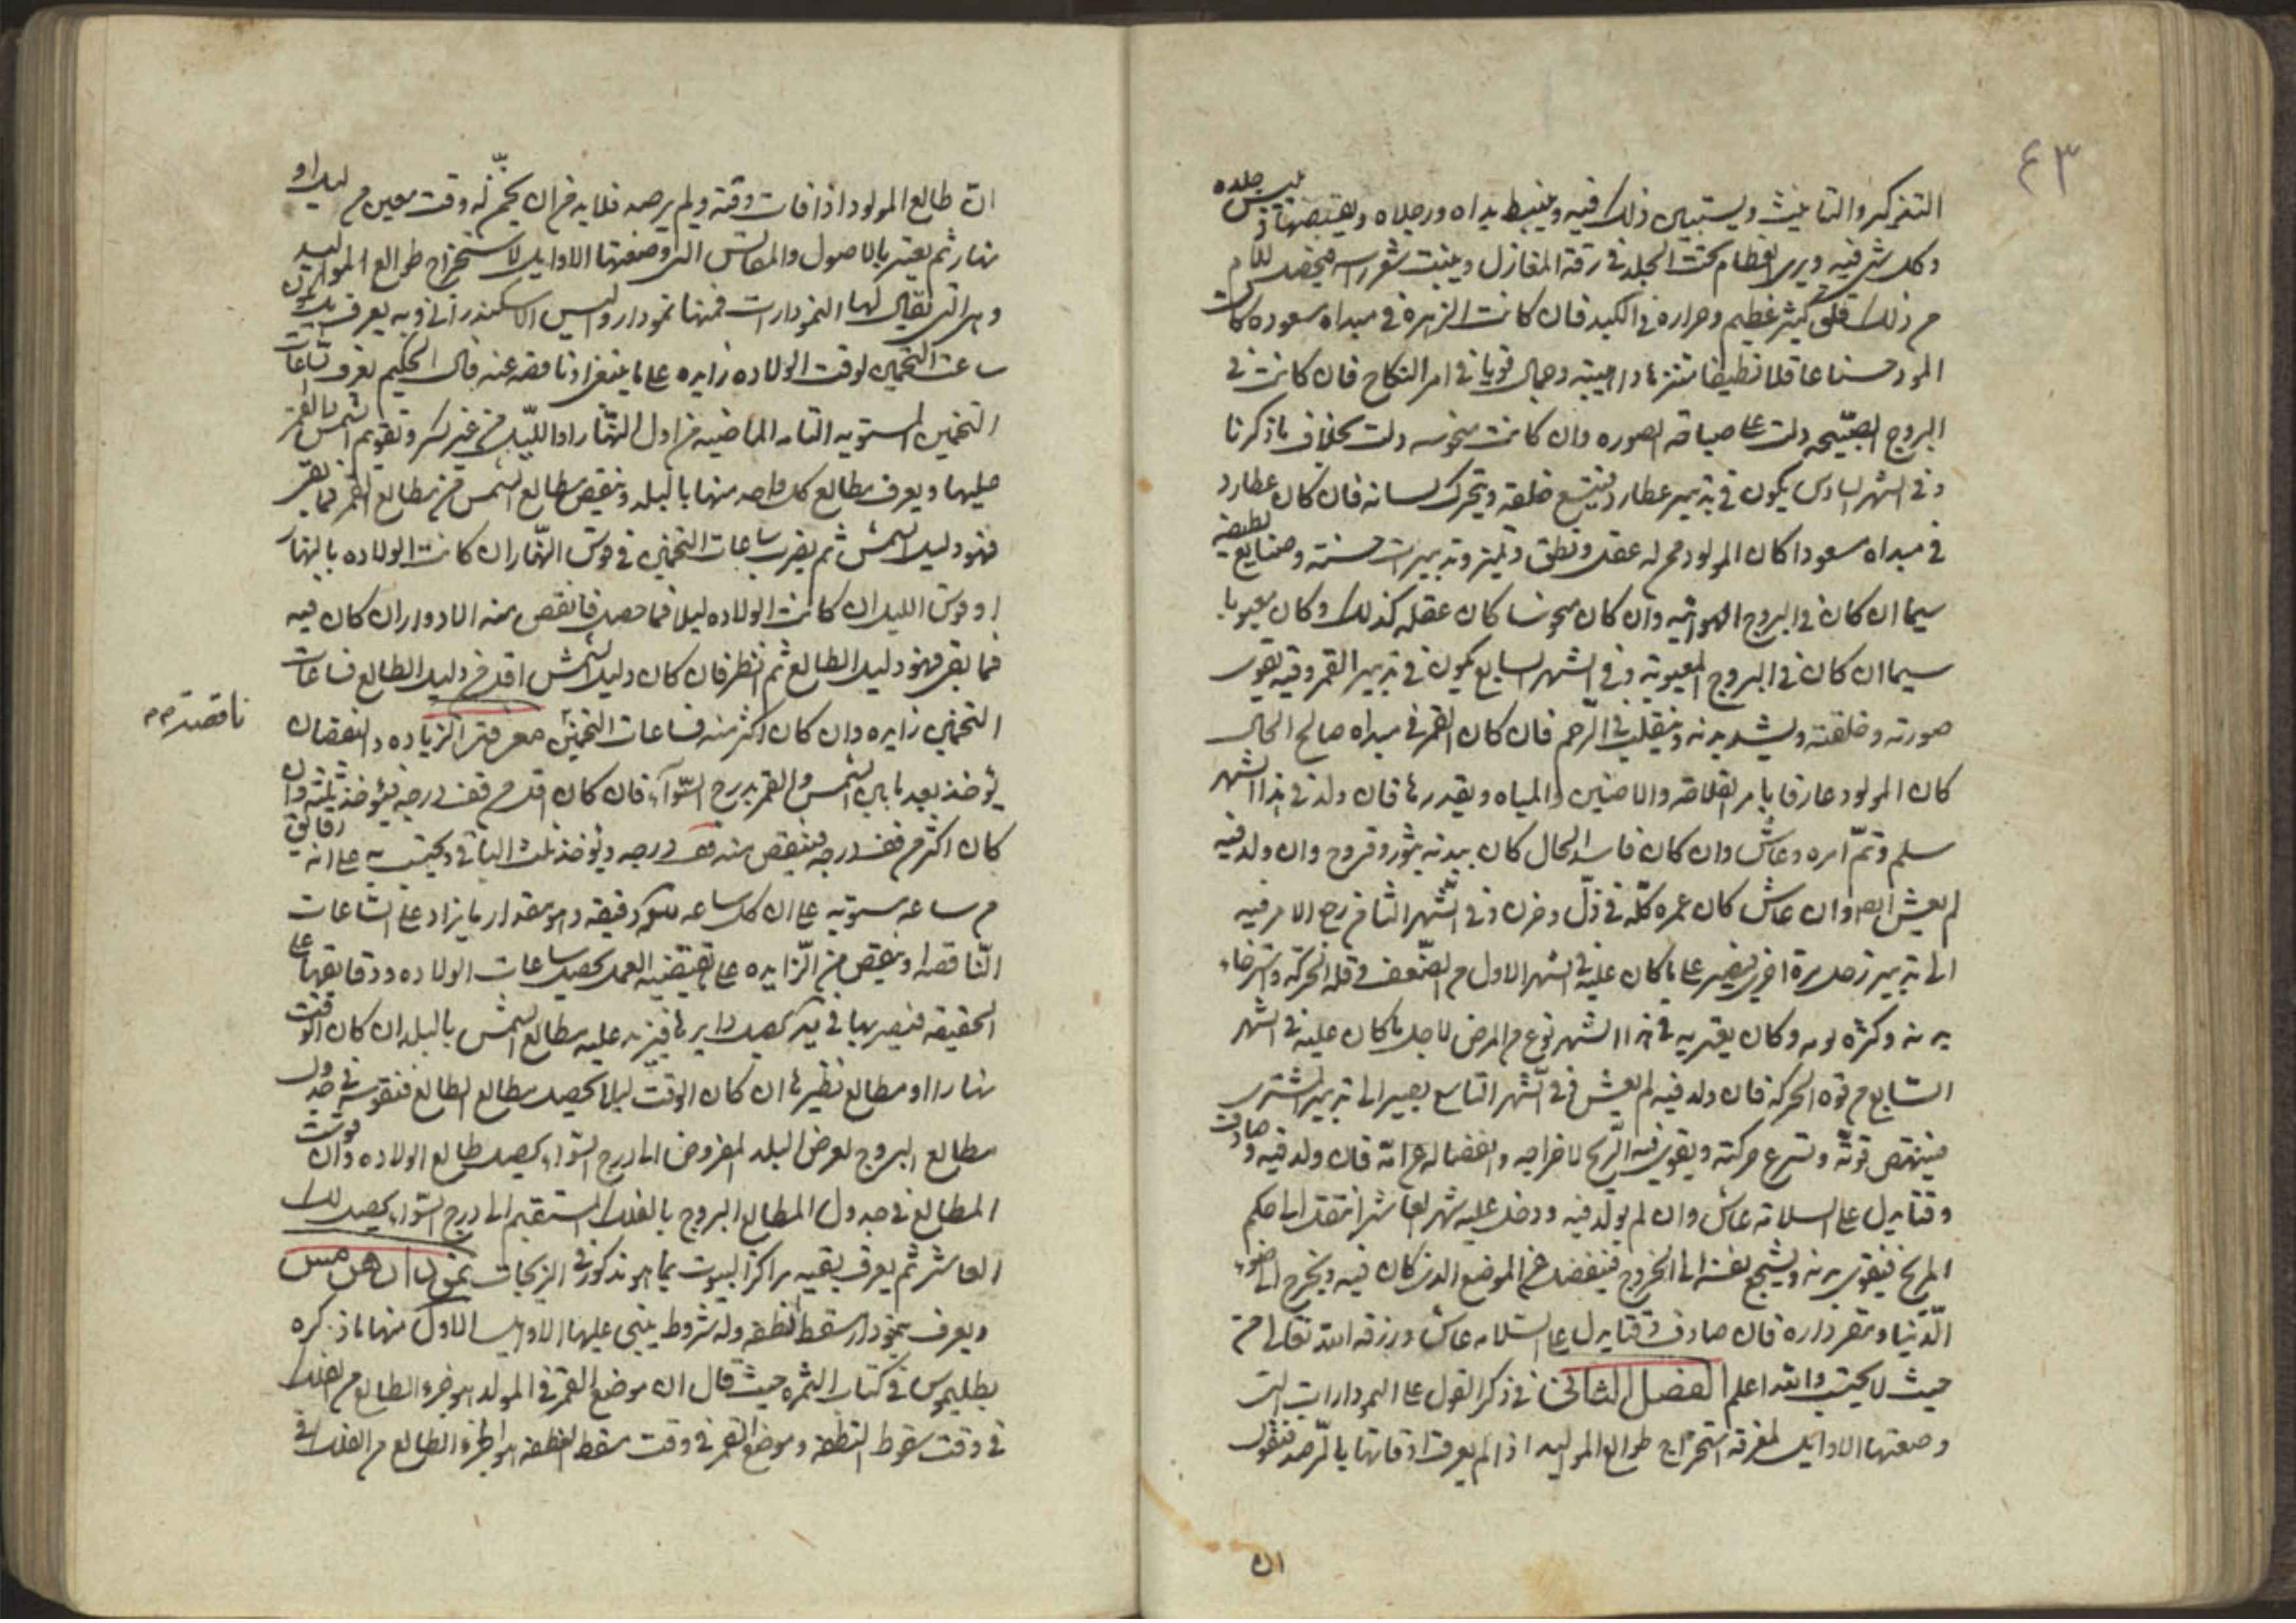 ٤٣
التذكير والتانيث ويستبين ذلك فيه وينبسط يداه ورجلاه ويقبضها
وكل شي فيه ويرى العظام تحت الجلد في رقة المغازل وينبت شعر راسه فيحصل للام
من ذلك قلق كثير عظيم وحراره في الكبد فان كانت الزهرة في مبداه سعوده كان
المولود حسنا عاقلا نظيفا متنزها وجمال قويا في امر النكاح فان كانت في
البروج دلت على الصوره وان كانت منحوسه دلت بخلاف ما ذكرنا
وفي الشهر السادس يكون في تدبير عطارد خلقه ويتحرك لسانه فان كان عطارد
في مبداه سعودا كان المولود له عقل ونطق وتميز وتدبيرات حسنة وصنايع لطيفه
سيما ان كان في البروج الهوائيه وان كان منحوسا كان عقله كذلك وكان معيوبا
سيما ان كان في البروج المعيوبة وفي الشهر السابع يكون في تدبير القمر وفيه تقوى
صورته وخلقته ويشتد بدنه وينقلب في الرحم فان كان القمر في مبداه صالح الحال
كان المولود عارفا بامر الفلاحه والاراضين والمياه ويقدرها فان ولد في هذا الشهر
سلم وتم امره وعاش وان كان فاسد الحال كان ببدنه بثور وقروح وان ولد فيه
لم يعش ابدا وان عاش كان عمره كله في ذل وحزن وفي الشهر الثامن يرجع الامر فيه
الى تدبير زحل مرة اخرى فيصير على ما كان عليه في الشهر الاول من الضعف وقلة الحركة واسترخاء
بدنه وكثرة نومه وكان يعتريه في هذا الشهر نوع من المرض لاجل ما كان عليه في الشهر
السابع من قوة الحركة فان ولد فيه لم يعش وفي الشهر التاسع يصير الى تدبير المشتري
فينتهض قوته وتسرع حركته ويقوى فيه الريح لاخراجه وانفصاله عن امه فان ولد فيه وصادف
وقتا يدل على السلامة عاش وان لم يولد فيه ودخل عليه شهر العاشر انتقل الى حكم
المريخ فيقوى بدنه ويشجع نفسه الى الخروج فينفصل عن الموضع الذي كان فيه ويخرج الى ضوء
الدنيا ومقر داره فان صادف وقتا يدل على السلامه عاش ورزقه الله تعالى من
حيث لا يحتسب والله اعلم الفصل الثاني في ذكر القول على النمودارات التي
وضعتها الاوايل لمعرفة استخراج طوالع المواليد اذا لم يعرف اوقاتها بالرصد فنقول
ان
ان طالع المولود اذا فات وقته ولم يرصد فلا بد من ان يخمن له وقت معين من ليل او
نهار ثم يعتبر بالاصول والمقاييس التي وضعتها الاوايل لاستخراج طوالع المواليد
وهي التي يقال لها النمودارات فمنها نمودار واليس الاسكندراني وبه يعرف هل يكون
ساعت التخمين لوقت الولاده زايده على ما ينبغي او ناقصه عنه قال الحكيم تعرف ساعات
التخمين المستويه التامه الماضيه من اول النهار او الليل من غير كسر وتقويم الشمس والقمر
عليها ويعرف مطالع كل واحد منهما بالبلد وينقص مطالع الشمس من مطالع القمر فما بقي
فهو دليل الشمس ثم يضرب ساعات التخمين في قوس النهار ان كانت الولاده بالنهار
او قوس الليل ان كانت الولاده ليلا فما حصل فانقص منه الادوار ان كان فيه
فما بقي فهو دليل الطالع ثم انظر فان كان دليل الشمس اقل من دليل الطالع فساعات
التخمين زايده وان كان اكثر منه فساعات التخمين معرفة الزياده والنقصان
ناقصة صح
يؤخذ بعد ما بين الشمس والقمر بدرج السواء فان كان اقل من قف درجه فيؤخذ ثلثه وان
كان اكثر من قف درجه فينقص منه قف درجه ويؤخذ ثلث الباقي ويحتسب به على انه دقايق
من ساعه مستويه على ان كل ساعه دقيقه وهو مقدار ما يزاد على الساعات
الناقصه او ينقص من الزايده على ما يقتضيه العمل يحصل ساعات الولاده ودقايقها على
الحقيقه فيضربها في يه يحصل دايرها فيزيد عليه مطالع الشمس بالبلد ان كان الوقت
نهارا او مطالع نظيرها ان كان الوقت ليلا يحصل مطالع الطالع فنقوسه في جدول
مطالع البروج لعرض البلد المفروض الى درج السواء يحصل طالع الولاده وان قوست
المطالع في جدول المطالع البروج بالفلك المستقيم الى درج السواء يحصل لك
العاشر ثم يعرف بقيه مراكز البيوت بما هو مذكور في الزيجات نمودار هرمس
ويعرف بنمودار مسقط النطفه وله شروط يبنى عليها الاوايل الاول منها ما ذكره
بطليموس في كتاب الثمره حيث قال ان موضع القمر في المولد هو جزء الطالع من الفلك
في وقت سقوط النطفه وموضع القمر في وقت مسقط النطفه هو الجزء الطالع من الفلك في